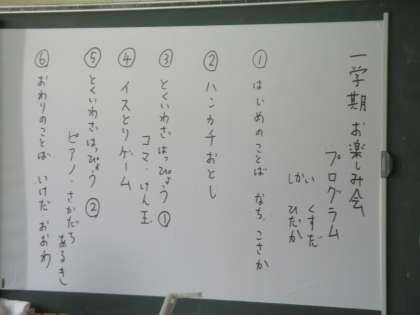 一学期 お楽しみ会
プログラム
い くすだ
しか ひだか
① はじめのことば なち こさか
② ハンカチおとし
③ とくいわざはっぴょう ①
コマ・けん玉
④ イスとりゲーム
⑤ とくいわざはっぴょう ②
ピアノ・さかだち
あるき
⑥ おわりのことば いけだ おおわ